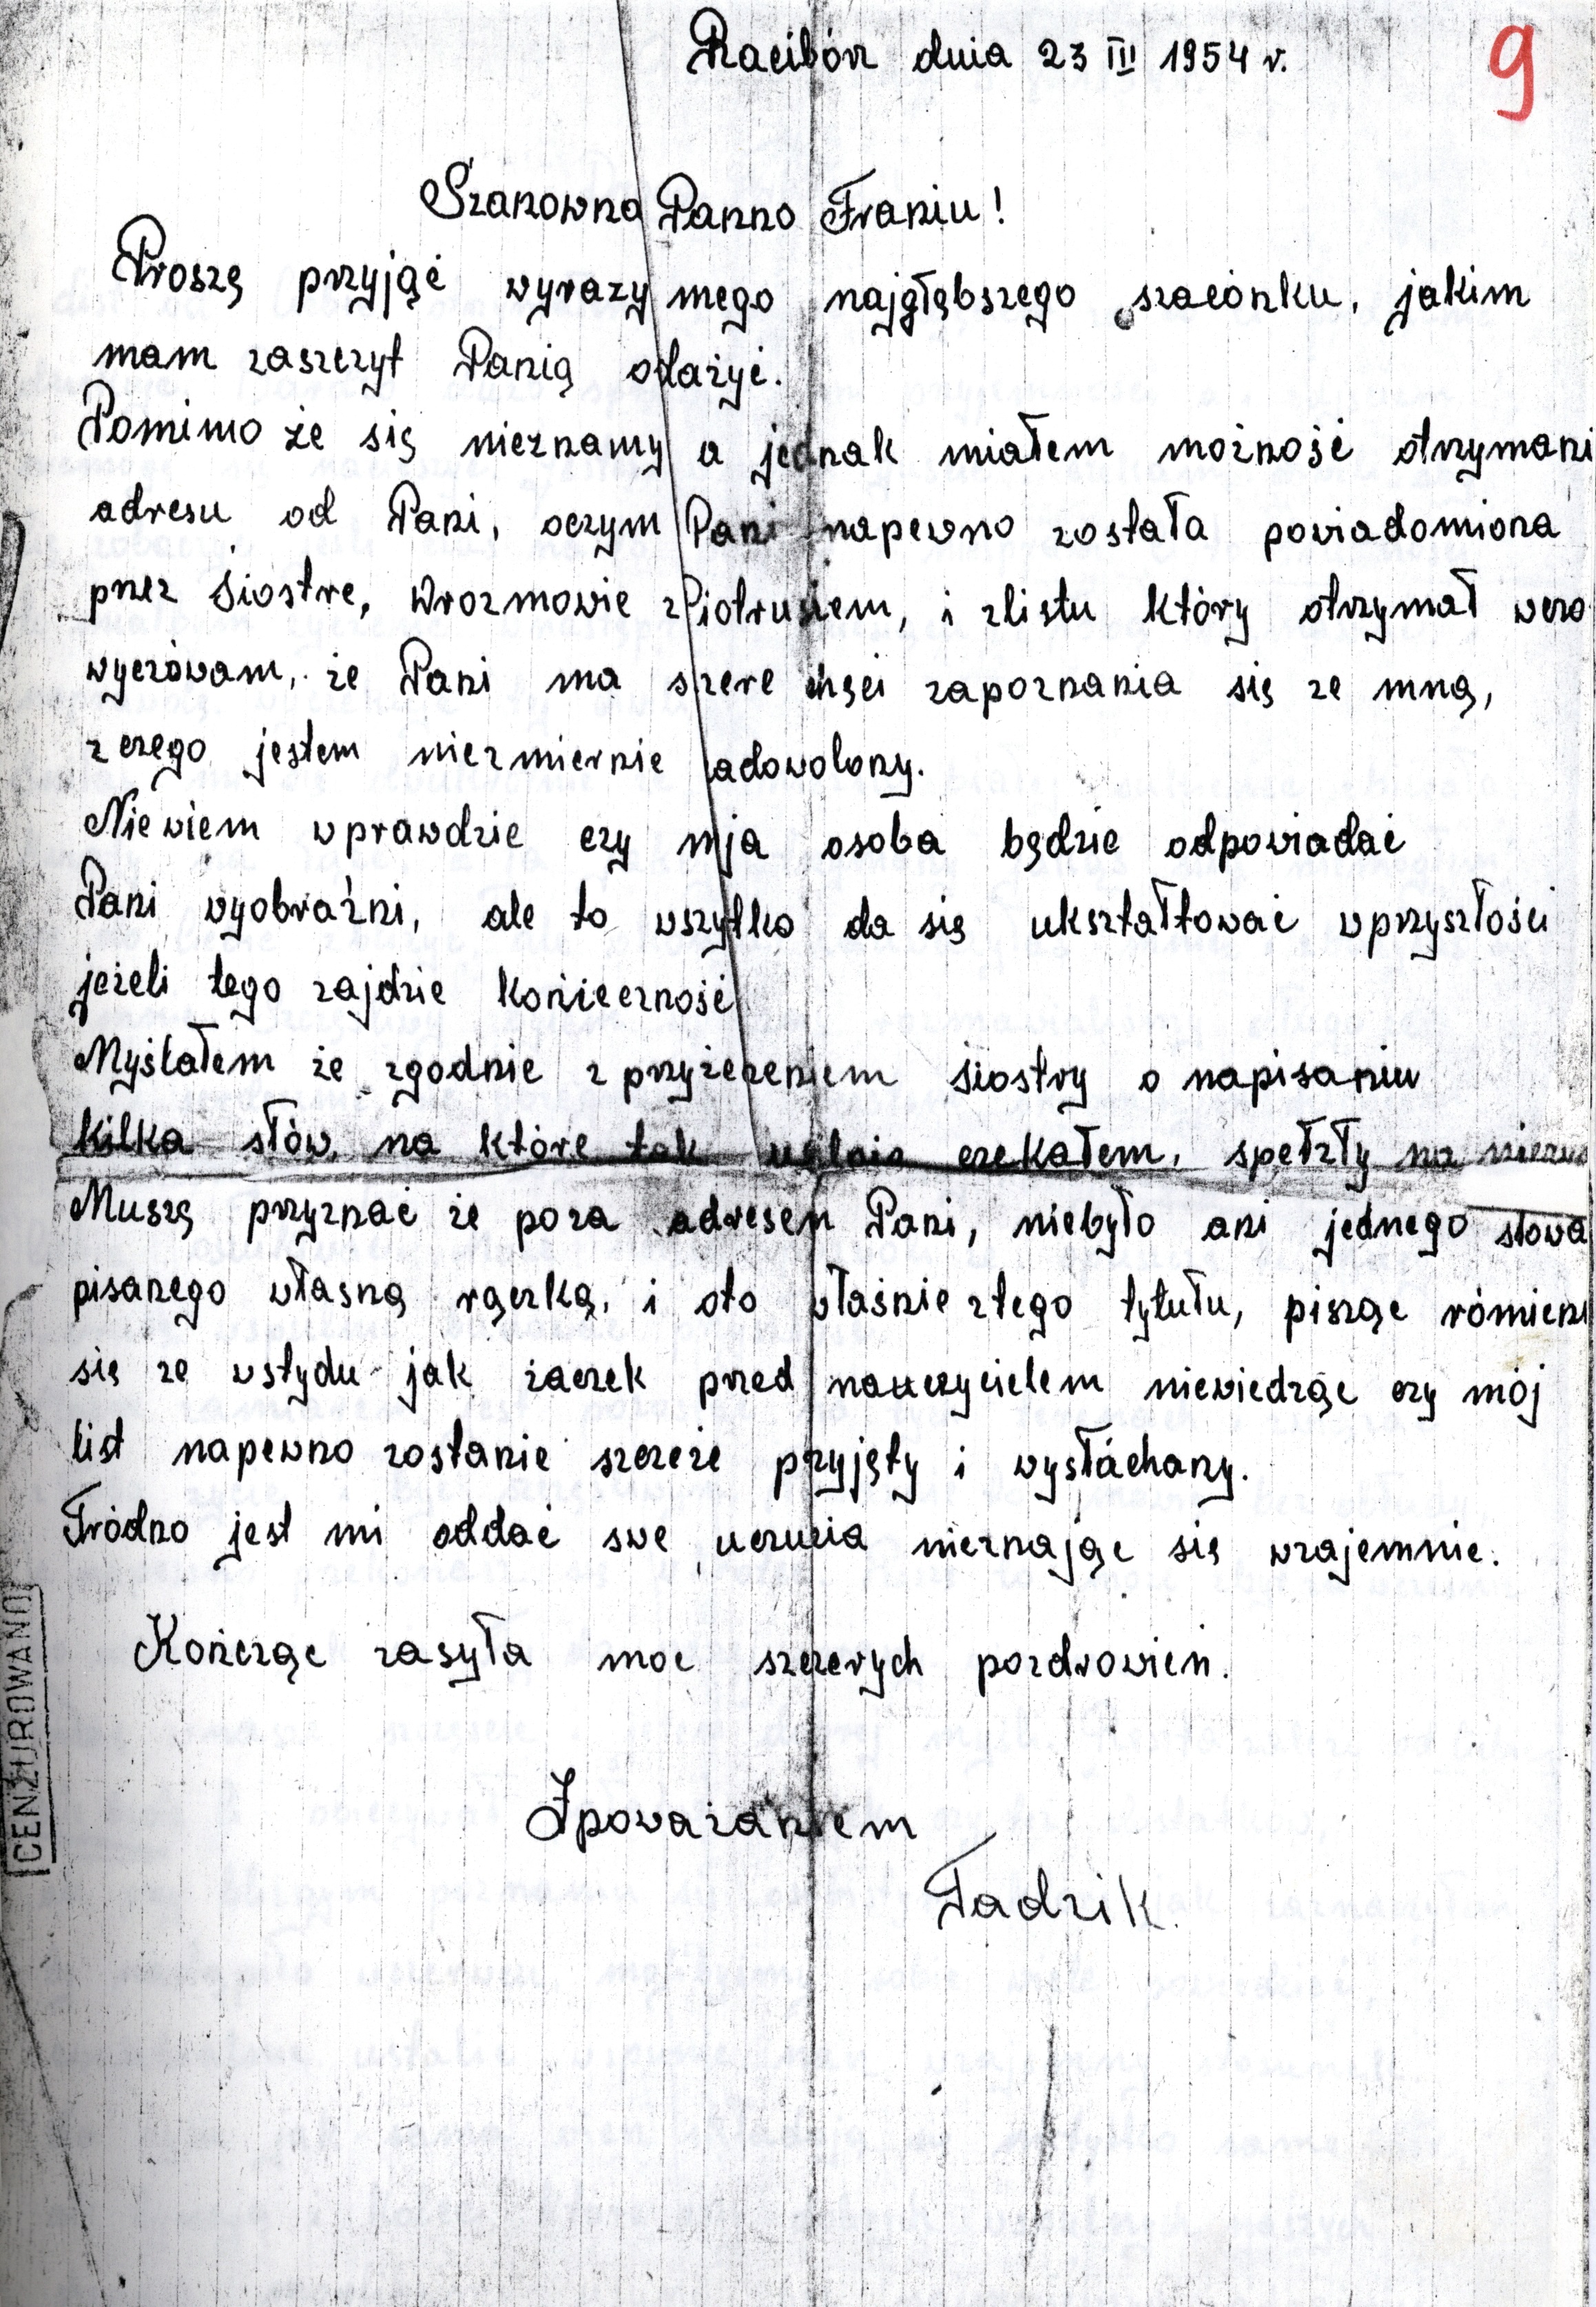 Racibórz dnia 23 III 1954 r.
9
Szanowna Panno Franiu!
Proszę przyjąć wyrazy mego najgłębszego szacónku, jakim
mam zaszczyt Panią odażyć.
Pomimo że się nieznamy a jednak miałem możność otrzymani
adresu od Pani, oczym Pani napewno została powiadomiona
przez siostre, Wrozmowie zPiotrusiem, i zlistu który otrzymał wczo
wyczówam, że Pani ma szcere chęci zapoznania się ze mną,
z czego jestem niezmiernie zadowolony.
Niewiem wprawdzie czy mja osoba będzie odpowiadać
Pani wyobraźni, ale to wszytko da się ukształtować wprzyszłości
jeżeli tego zajdzie konieczność
Myślałem że zgodnie z przyżeczeniem siostry o napisaniu
kilka słów, na które tak usilnie czekałem, spełzły na
Muszę przyznać że poza adresem Pani, niebyło ani jednego słowa
pisanego własną rączką, i oto właśnie ztego tytułu, pisząc rómieni
się ze wstydu jak żaczek przed nauczycielem niewiedząc czy mój
list napewno zostanie szczeże przyjęty i wysłóchany.
Tródno jest mi oddać swe uczucia nieznając się wzajemnie.
Kończąc zasyła moc szczerych pozdrowień.
Zpoważaniem
Tadzik.
CENZUROWANO